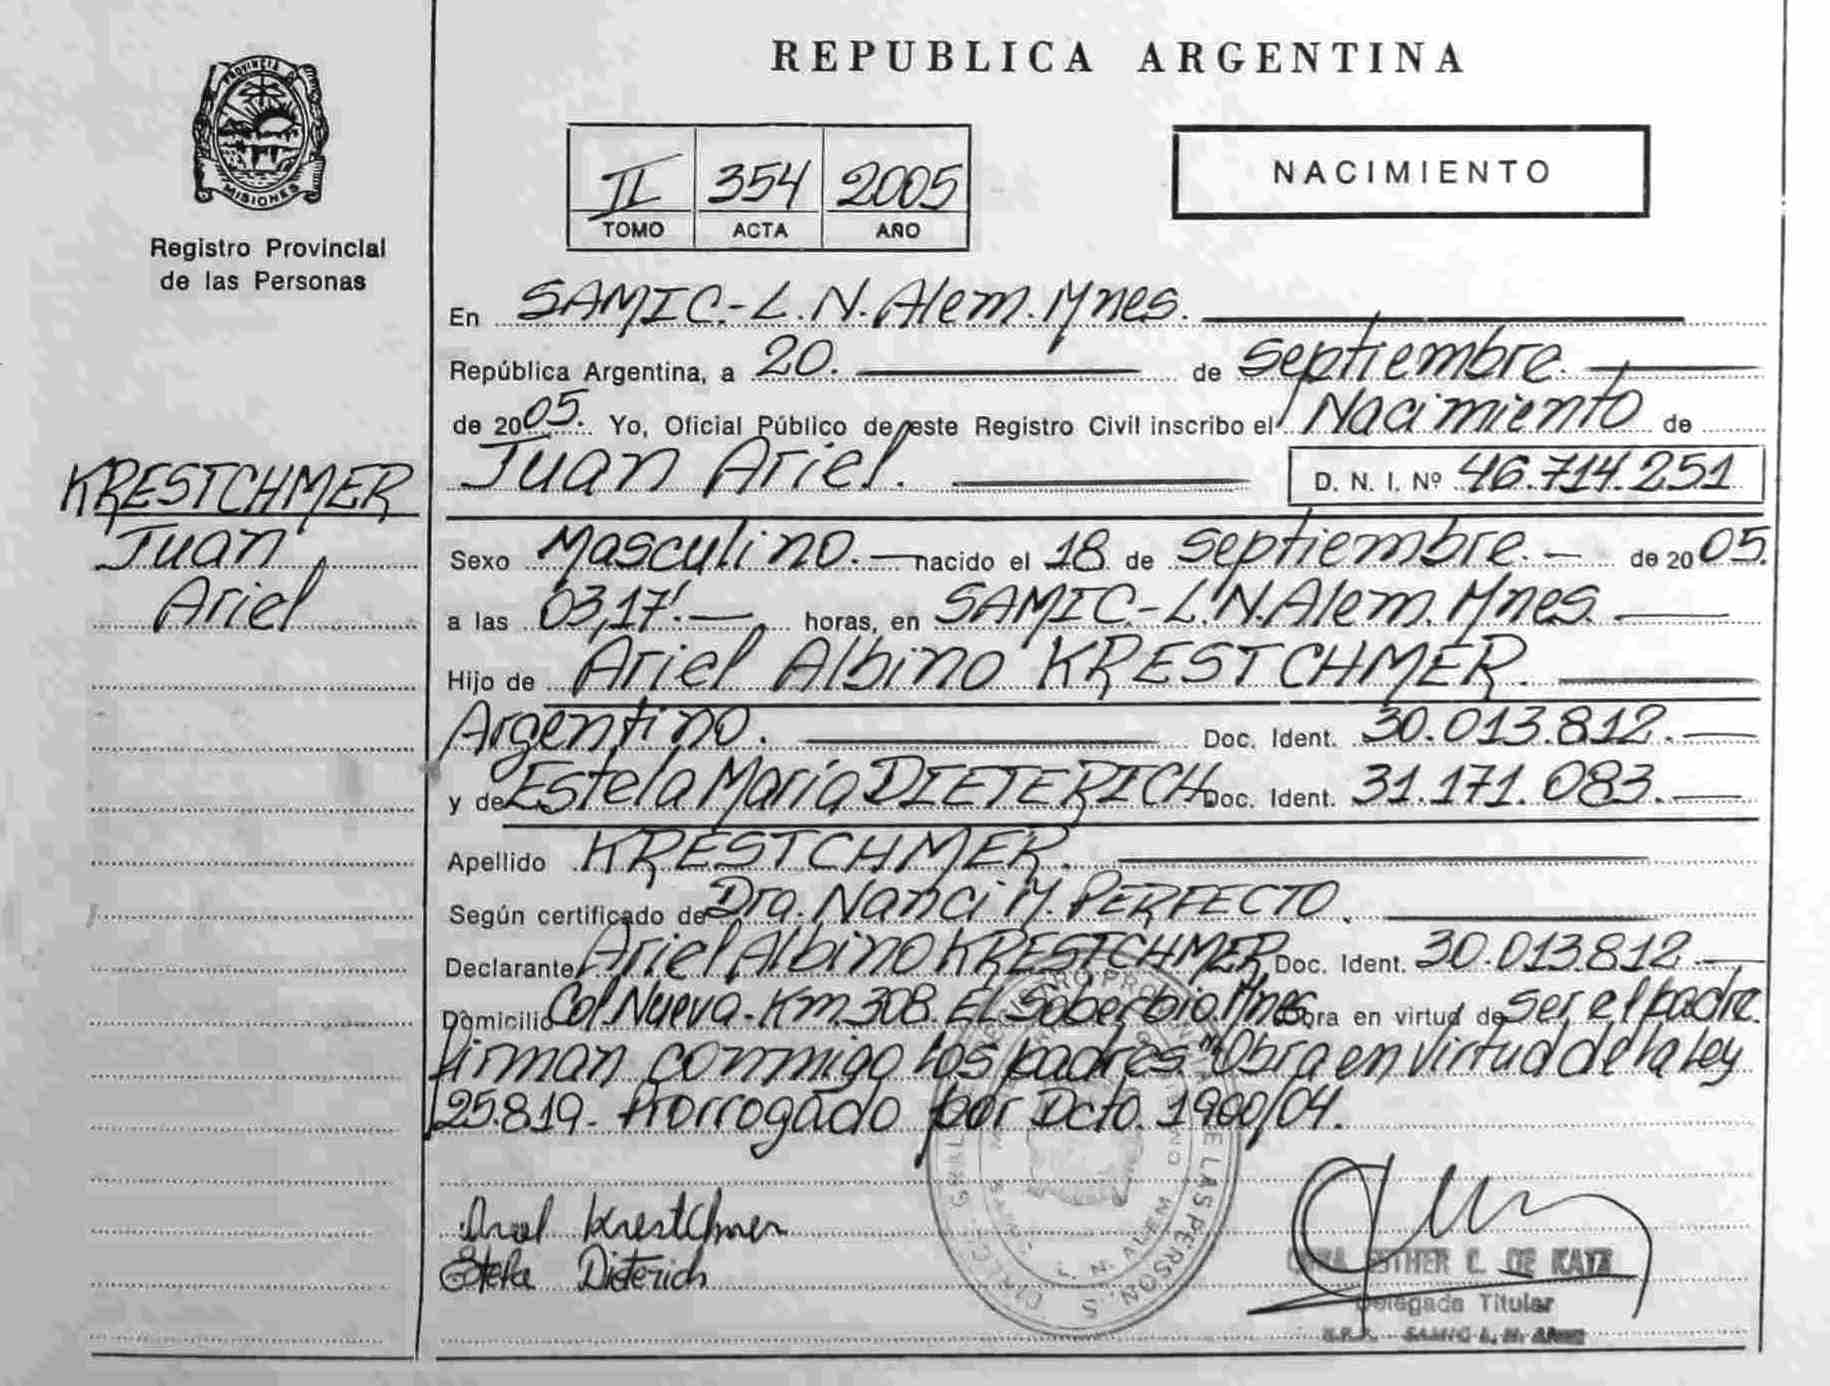 PROVINCIA D
MISIONES
Registro Provincial
de las Personas
KRESTCHMER
Juan
Ariel
REPUBLICA ARGENTINA
II 354 2005
TOMO ACTA AÑO
NACIMIENTO
En SAMIC.-L.N.Alem.Mnes.
República Argentina, a 20. de septiembre.
de 2005. Yo, Oficial Público de este Registro Civil inscribo el Nacimiento de
Juan Ariel. D. N. I. Nº 46.714.251
Sexo Masculino.- nacido el 18 de septiembre.- de 2005.
a las 03,17'.- horas, en SAMIC.-L.N.Alem.Mnes.
Hijo de Ariel Albino KRESTCHMER.
Argentino. Doc. Ident. 30.013.812.-
y de Estela María DIETERICH Doc. Ident. 31.171.083.-
Apellido KRESTCHMER.
Según certificado de Dra. Nanci M. PERFECTO.
Declarante Ariel Albino KRESTCHMER Doc. Ident. 30.013.812.-
Domicilio Col.Nueva-Km.308.El Soberbio.Mnes. Obra en virtud de ser el padre.
Firman conmigo los padres."Obra en virtud de la Ley
25.819.- Prorrogado por Dcto. 1900/04.
Ariel Krestchmer
Estela Dieterich
L. N. ALEM
DE LAS PERSONAS
ESTHER C. DE KATZ
Delegada Titular